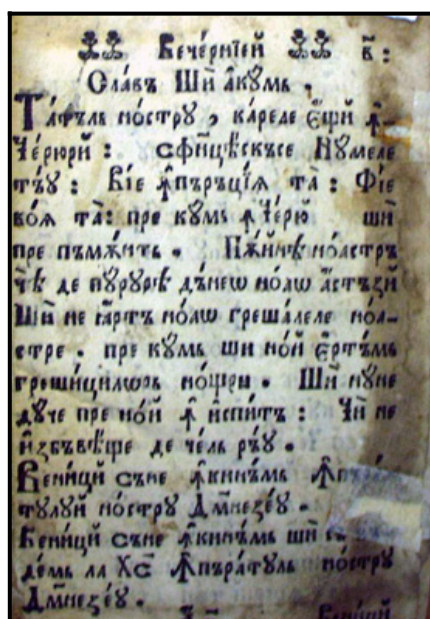 Вечерніей в҃:
Славъ Шѝ а҆кꙋмь .
Та́тъль но́стрꙋ , ка́реле є҆́щй ꙟ҆-
Че́рюрй : сфинце́скъсе Нꙋ́меле
тъ́ꙋ : Ві́е ꙟ҆пъръці́ѧ та̀ : Фі́е
во́ѧ та̀: пре кꙋмь ꙟ҆Че́рю шѝ
пре пъмѫ́нть . Пѫ́йнѣ но́астръ
чѣ́ де пꙋрꙋ́рѣ дъ́неѡ но́аѡ а҆́стъзй
Шѝ не ꙗ҆́ртъ но́аѡ греша́леле но́а-
стре . пре кꙋмь ши но́й є҆ртъ́мь
греши́цилѡрь но́щри . Шѝ нꙋ́не
дꙋ́че пре но́й ꙟ҆ и҆спи́тъ : Чѝ не
и҆збъвѣ́ще де че́ль ръ́ꙋ .
Вени́цй съне ꙟ҆кинъ́мь ꙟ҆пъра́
тꙋлꙋй но́стрꙋ Дм҃незе́ꙋ .
Вени́цй съне ꙟ҆кинъ́мь шѝ съ
де́мь ла Хс҃ ꙟ҆пъра́тꙋль но́стрꙋ
Дм҃незе́ꙋ .
Вени́цй